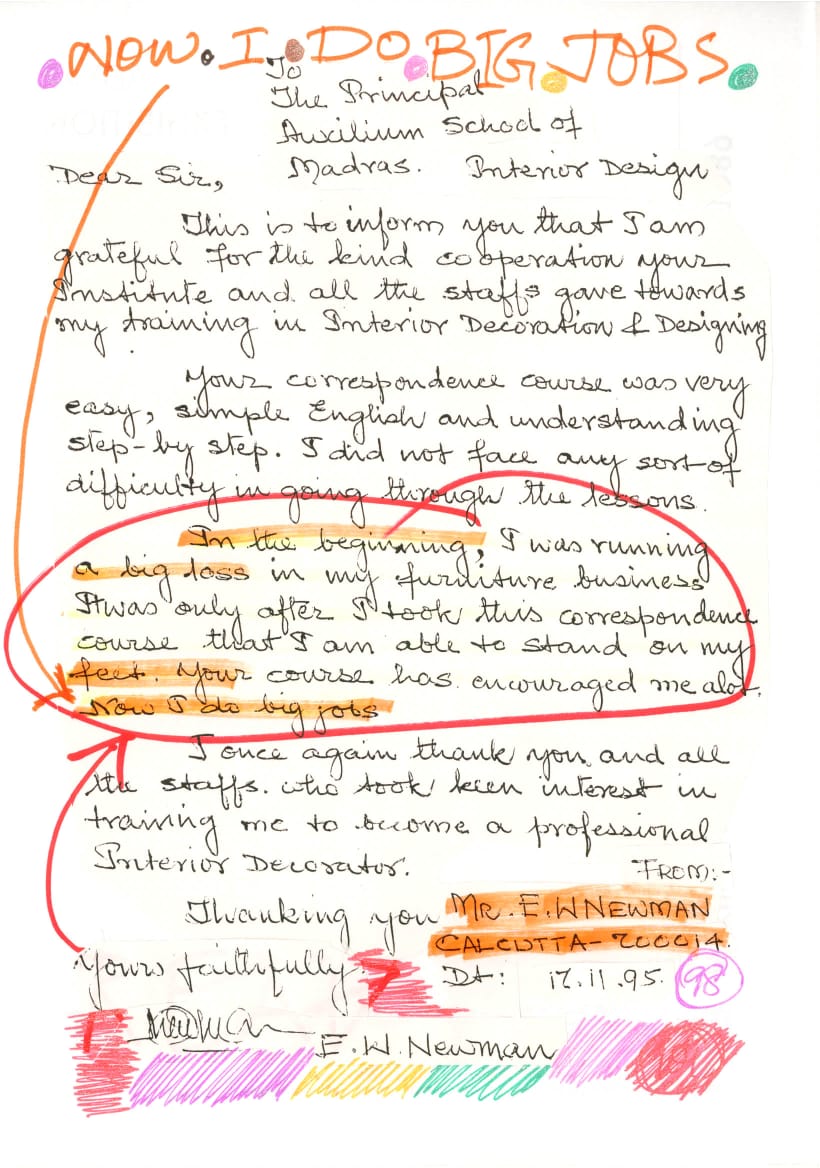 NOW. I. DO BIG JOBS.
To
The Principal
Auxilium School of
Madras. Interior Design
Dear Sir,
This is to inform you that I am
grateful for the kind cooperation your
Institute and all the staffs gave towards
my training in Interior Decoration & Designing
Your correspondence course was very
easy, simple English and understanding
step-by step. I did not face any sort of
difficulty in going through the lessons.
In the beginning, I was running
a big loss in my furniture business
It was only after I took this correspondence
course that I am able to stand on my
feet. Your course has encouraged me alot.
Now I do big jobs
I once again thank you and all
the staffs. who took keen interest in
training me to become a professional
Interior Decorator.
FROM:-
Thanking you MR. E. W NEWMAN
CALCUTTA-700014.
Yours faithfully
DT: 17.11.95. 98
Newman
E. W. Newman